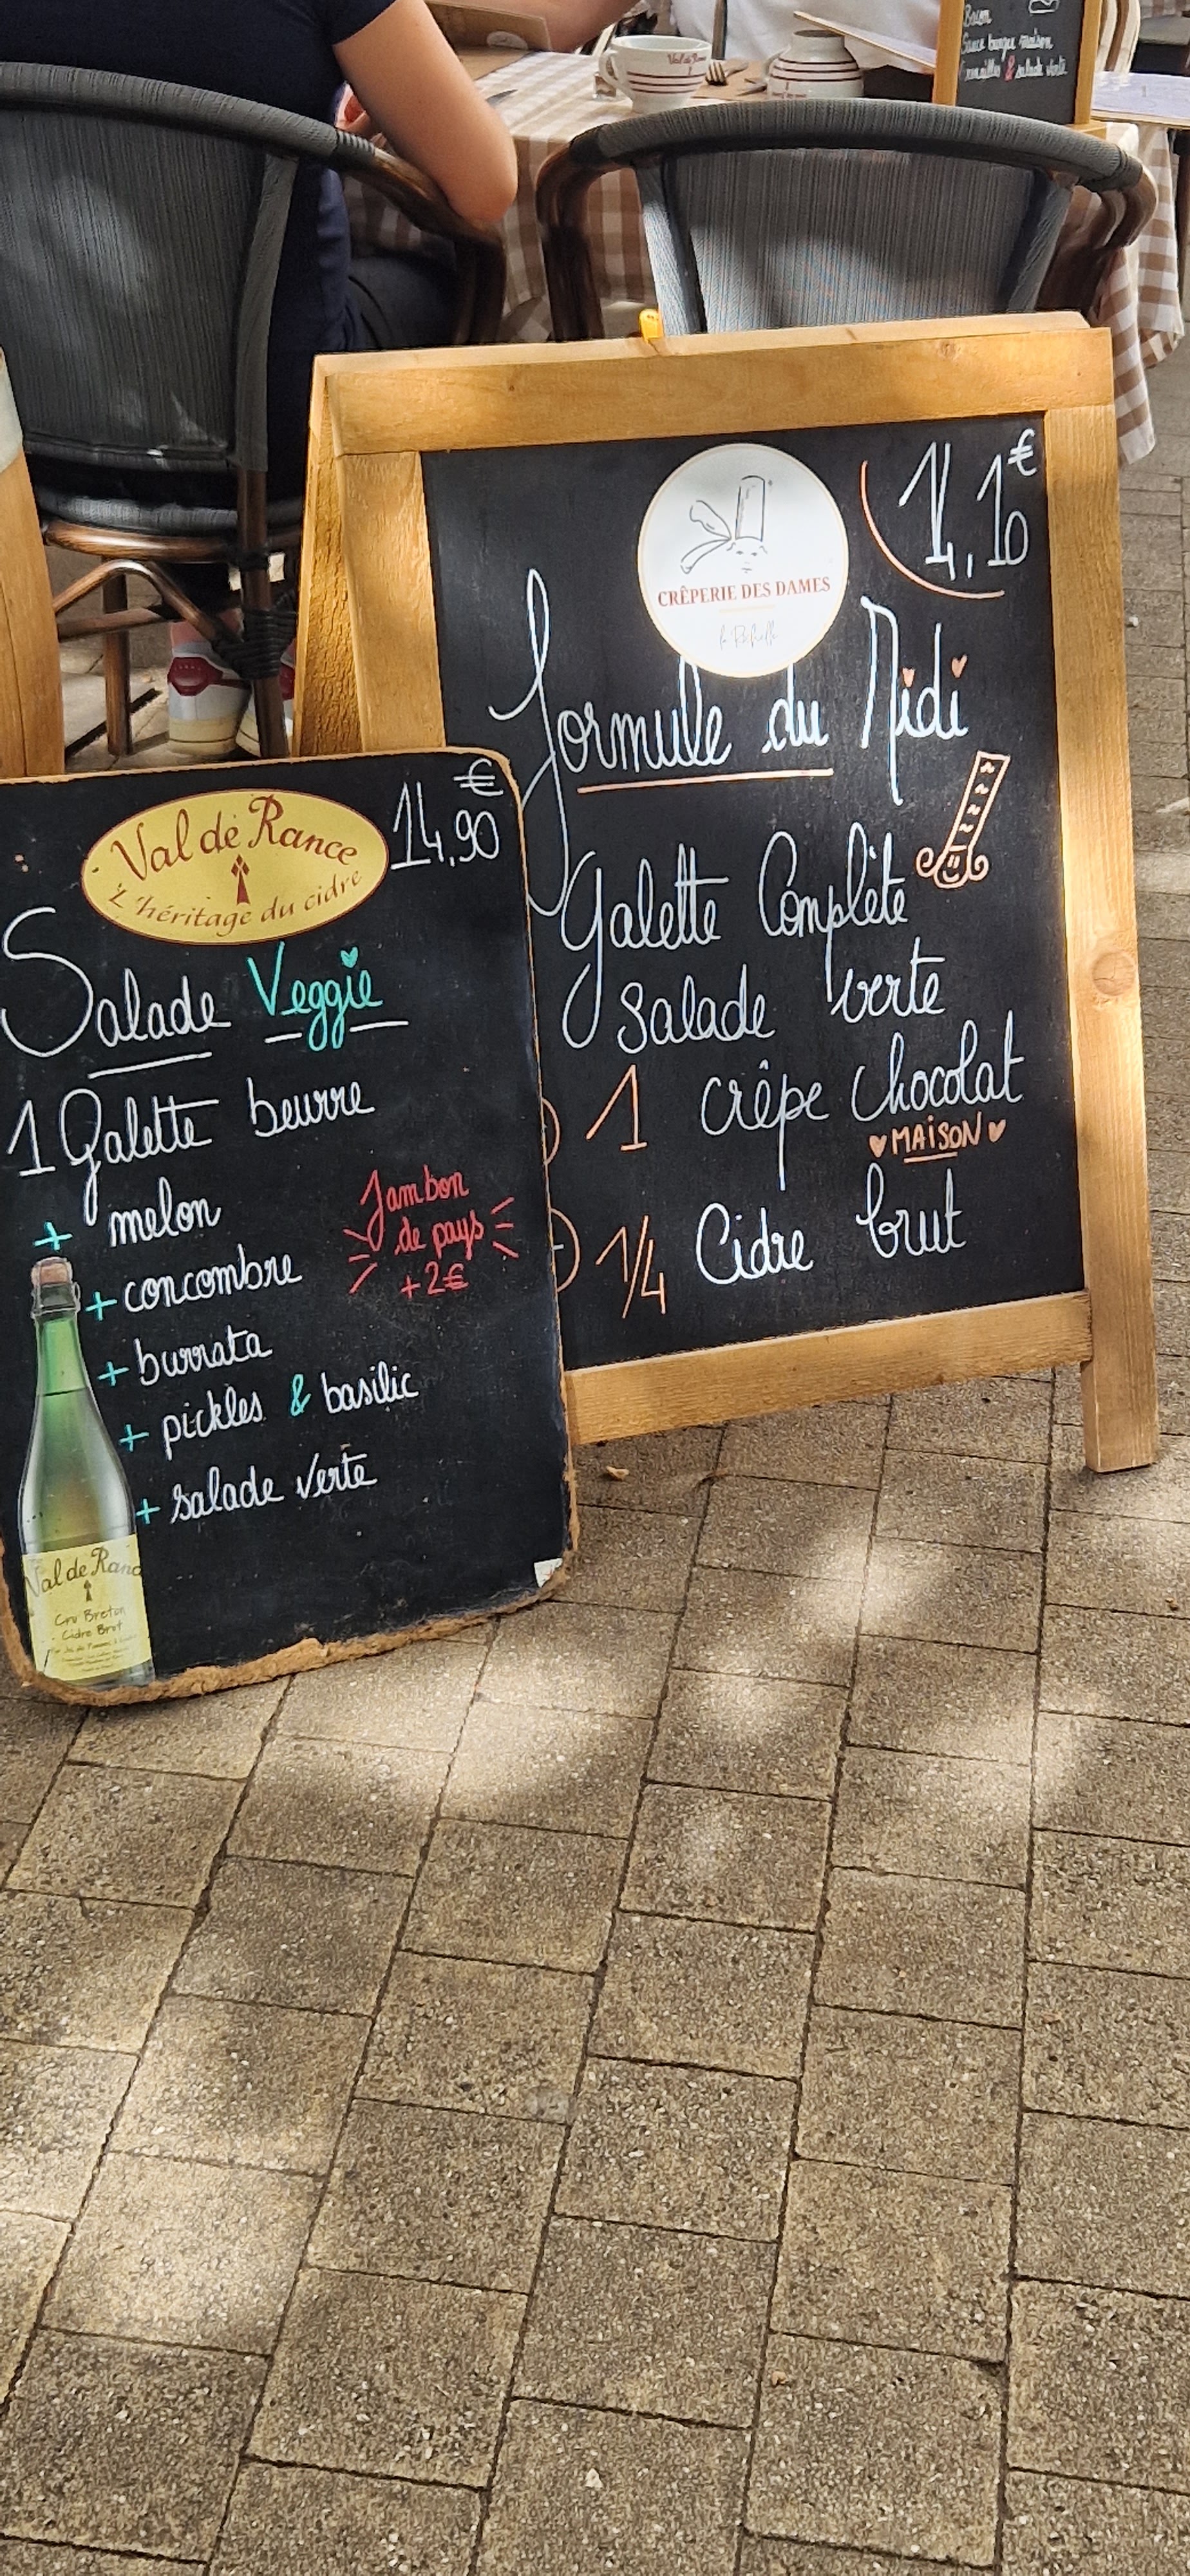 Bacon
Sauce burger maison
& salade verte
Val de Rance
CRÊPERIE DES DAMES
La Rochelle
14,10€
Formule du Midi
Galette Complète
Salade verte
1 crêpe chocolat
MAISON
1/4 Cidre brut
Val de Rance
L'héritage du cidre
14,90€
Salade Veggie
1 Galette beurre
+ melon
+ concombre
+ burrata
+ pickles & basilic
+ salade verte
Jambon
de pays
+2€
Val de Ranc
Cru Breton
Cidre Brut